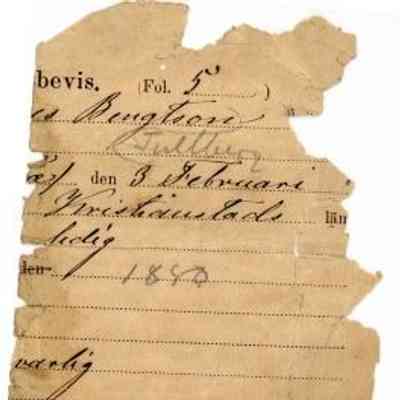 bevis. (Fol. 5 )
is Bengtson
den 3 Februari
Kristianstads län
ledig
den
1840
varlig